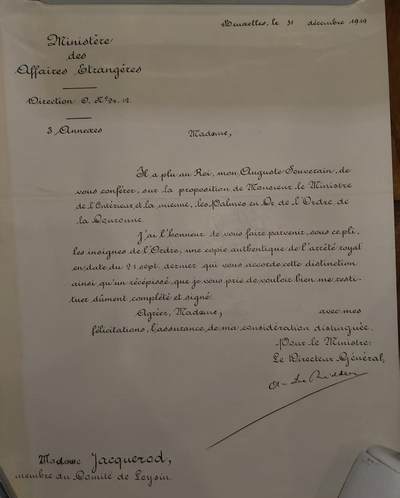 Bruxelles, le 31 décembre 1919
Ministère
des
Affaires Etrangères
Direction O. N° 24.12.
3 Annexes
Madame,
Il a plu au Roi, mon Auguste Souverain, de
vous conférer, sur la proposition de Monsieur le Ministre
de l'Intérieur et la mienne, les Palmes en Or de l'Ordre de
la Couronne.
J'ai l'honneur de vous faire parvenir, sous ce pli,
les insignes de l'Ordre, une copie authentique de l'arrêté royal
en date du 21 sept. dernier qui vous accorde cette distinction
ainsi qu'un récépissé que je vous prie de vouloir bien me resti-
tuer dûment complété et signé.
Agréez, Madame, avec mes
félicitations, l'assurance de ma considération distinguée.
Pour le Ministre:
Le Directeur Général,
Madame Jacquerod,
membre du Comité de Leysin.